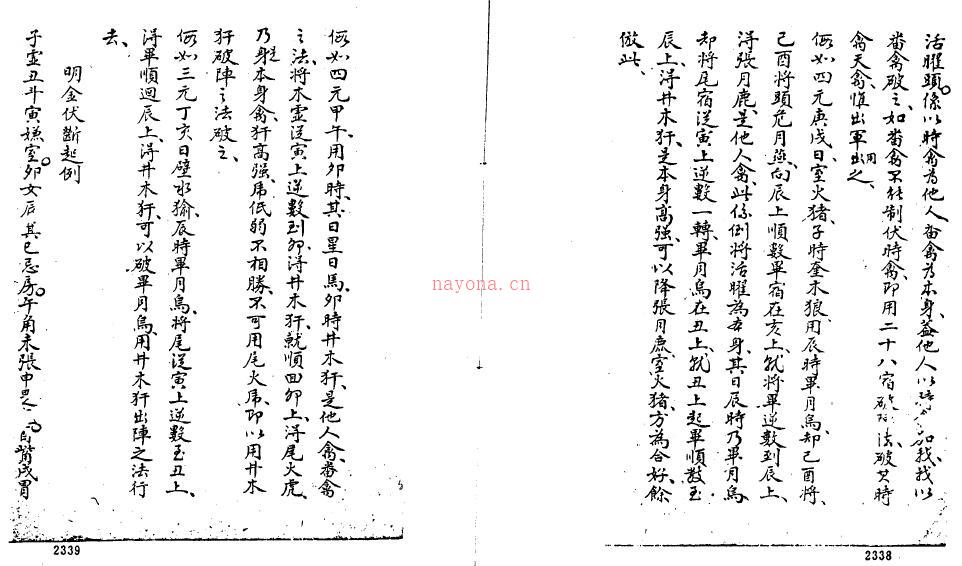 活曜頭係以時禽為他人畨禽為本身蓋他人以時加我我以
畨禽破之如畨禽不能制伏時禽即用二十八宿破法破其時
禽天禽惟出軍用之
假如四元庚戌日室火猪子時奎木狼用辰時畢月烏却己酉將
己酉將頭危月燕向辰上順數畢宿在亥上就將畢逆數到辰上
淂張月鹿是他人禽此係倒將活曜為本身其日辰時乃畢月烏
却將尾宿送寅上逆數一轉畢月烏在丑上就丑上起畢順數至
辰上淂井木犴是本身高強可以降張月鹿室火猪方為合好餘
倣此
2338
假如四元甲午用卯時其日星日馬卯時井木犴是他人禽畨禽
之法將木星送寅上逆數到卯淂井木犴就順回卯上淂尾火虎
乃是身本身禽犴高強虎低弱不相勝不可用尾火虎即以用井木
犴破陣之法破之
假如三元丁亥日壁水㺄辰時畢月烏將尾送寅上逆數至丑上
淂畢順迴辰上淂井木犴可以破畢月烏用井木犴出陣之法行
去
明金伏斷起例
子虛丑斗寅嫌室卯女辰箕巳忌房午角未張申鬼酉觜戌胃
2339
nayona.cn